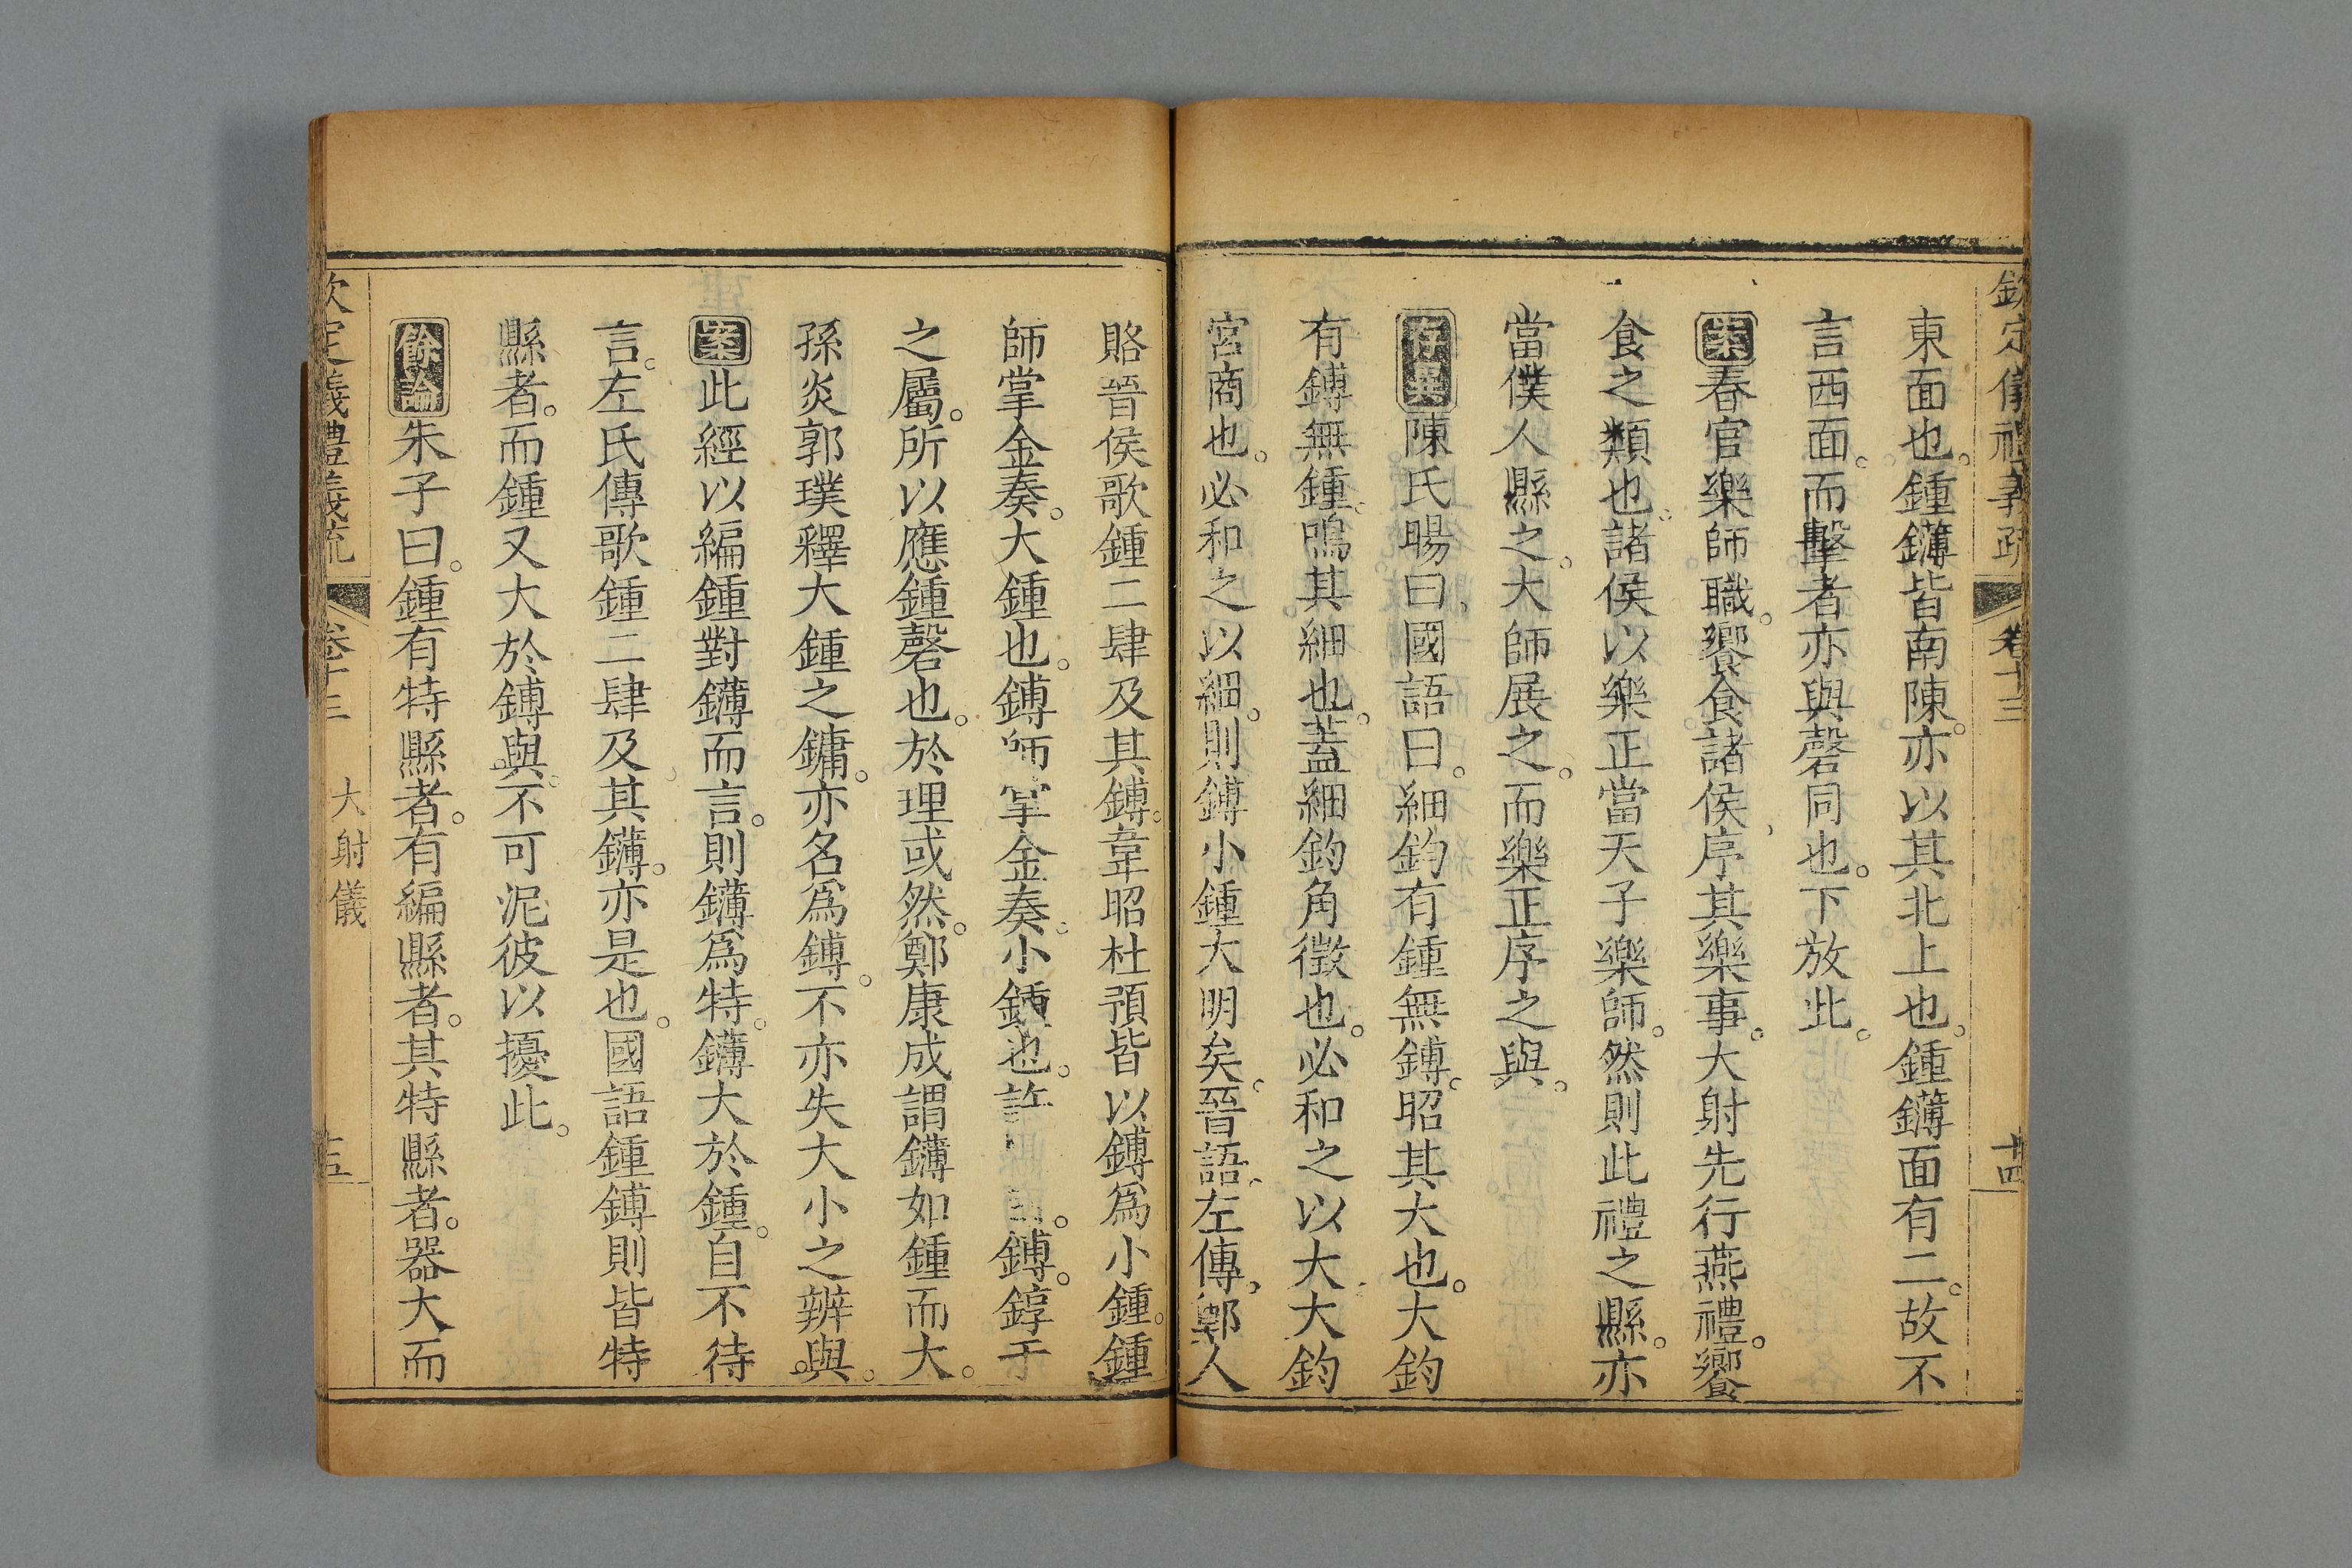 欽定儀禮義疏 卷十三 十四
東面也。鍾鑮皆南陳。亦以其北上也。鍾鑮面有二。故不
言西面。而擊者亦與磬同也。下放此。
案春官樂師職。饗食諸侯、序其樂事。大射先行燕禮。饗
食之類也。諸侯以樂正當天子樂師。然則此禮之縣。亦
當僕人縣之。大師展之。而樂正序之與。
存異陳氏暘曰、國語曰。細鈞有鍾無鎛。昭其大也。大鈞
有鎛無鍾。鳴其細也。蓋細鈞角徵也。必和之以大。大鈞
宮商也。必和之以細。則鎛小鍾大明矣。晉語、左傳、鄭人
賂晉侯歌鍾二肆及其鎛。韋昭杜預皆以鎛爲小鍾。鍾
師掌金奏。大鍾也。鎛師掌金奏。小鍾也。許 鎛。錞于
之屬。所以應鍾磬也。於理或然。鄭康成謂鑮如鍾而大。
孫炎郭璞釋大鍾之鏞。亦名爲鎛。不亦失大小之辨與。
案此經以編鍾對鑮而言。則鑮爲特。鑮大於鍾。自不待
言。左氏傳歌鍾二肆及其鑮。亦是也。國語鍾鎛則皆特
縣者。而鍾又大於鎛與。不可泥彼以擾此。
餘論朱子曰。鍾有特縣者。有編縣者。其特縣者。器大而
欽定儀禮義疏 卷十三 大射儀 十五